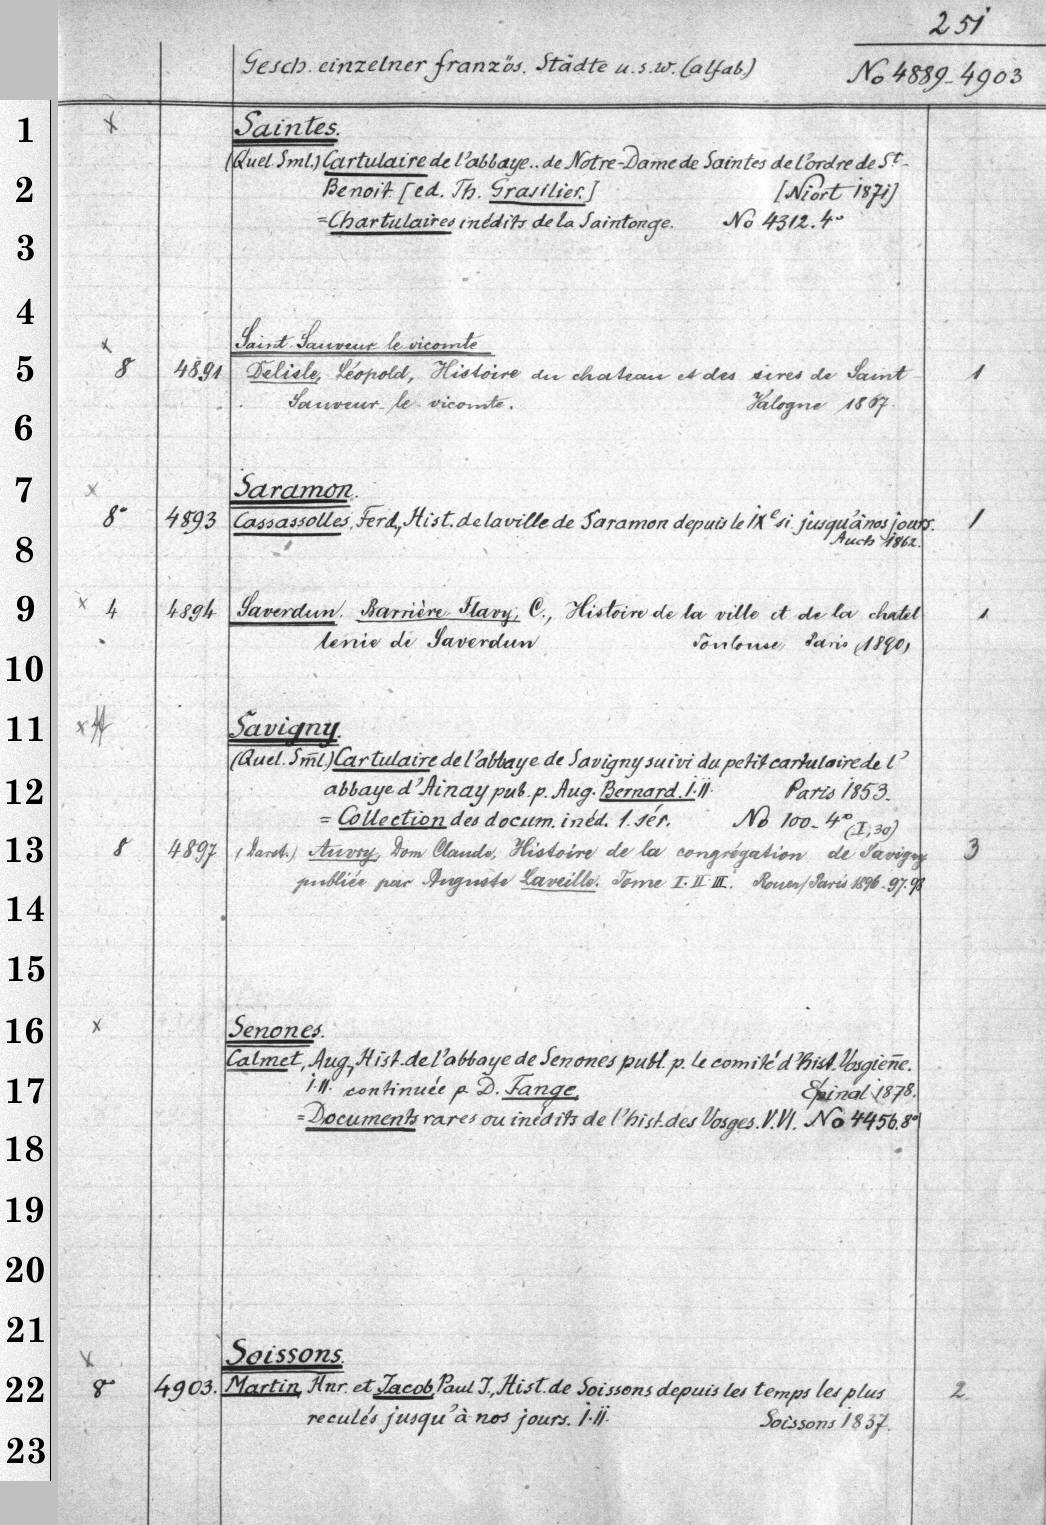 251
Gesch. einzelner französ. Städte u.s.w. (alfab.)
No 4889-4903
1 x Saintes.
(Quel. Sml.) Cartulaire de l'abbaye.. de Notre-Dame de Saintes de l'ordre de St-
2 Benoit [ed. Th. Grasilier.] [Niort 1871]
= Chartulaires inédits de la Saintonge. No 4312. 4°
3
4
Saint Sauveur le vicomte
x
5 8 4891 Delisle, Léopold, Histoire du chateau et des sires de Saint 1
Sauveur-le-vicomte. Valogne 1867.
6
7 x Saramon.
8° 4893 Cassassolles, Ferd., Hist. de la ville de Saramon depuis le IXe si. jusqu'à nos jours. 1
8 Auch 1862.
9 x 4 4894 Saverdun. Barrière Flavy, C., Histoire de la ville et de la chatel 1
lenie de Saverdun Toulouse Paris (1890)
10
11 x Savigny.
(Quel. Sml.) Cartulaire de l'abbaye de Savigny suivi du petit cartulaire de l'
12 abbaye d'Ainay pub. p. Aug. Bernard. I.II. Paris 1853.
= Collection des docum. inéd. 1. sér. No 100-4° (I,30)
13 8 4897 Auvry, Dom Claude, Histoire de la congrégation de Savigny 3
publiée par Auguste Laveille. Tome I.II III. Rouen/Paris 1896-97.98
14
15
16 x Senones.
Calmet, Aug., Hist. de l'abbaye de Senones publ. p. le comité d'hist. Vosgien̄e.
17 I.II. continuée p. D. Fange. Epinal 1878.
= Documents rares ou inédits de l'hist. des Vosges. V.VI. No 4456. 8°
18
19
20
21
x Soissons.
22 8° 4903. Martin, Hnr. et Jacob, Paul J., Hist. de Soissons depuis les temps les plus 2
reculés jusqu'à nos jours. I.II. Soissons 1837.
23